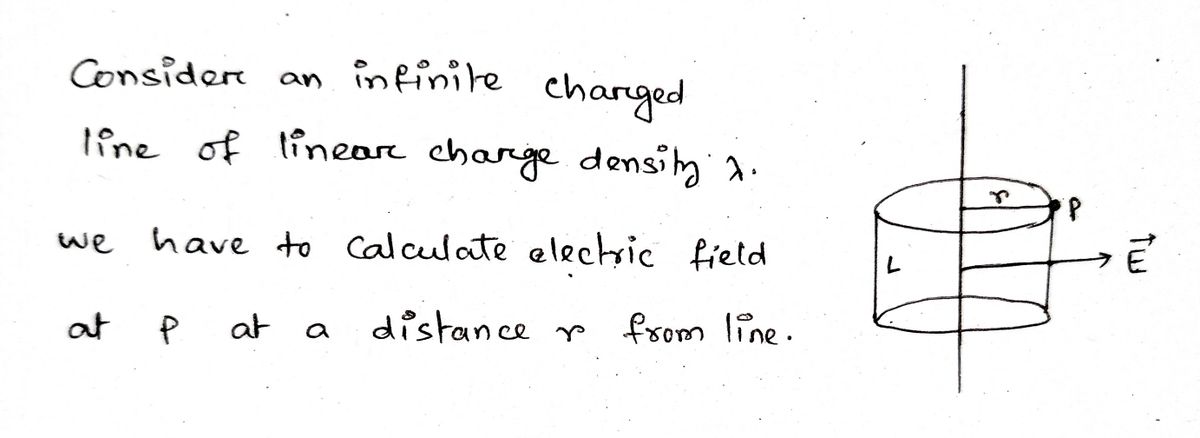 Consider an infinite charged
line of linear charge density λ.
we have to calculate electric field
at P at a distance r from line.
r
P
L
E⃗